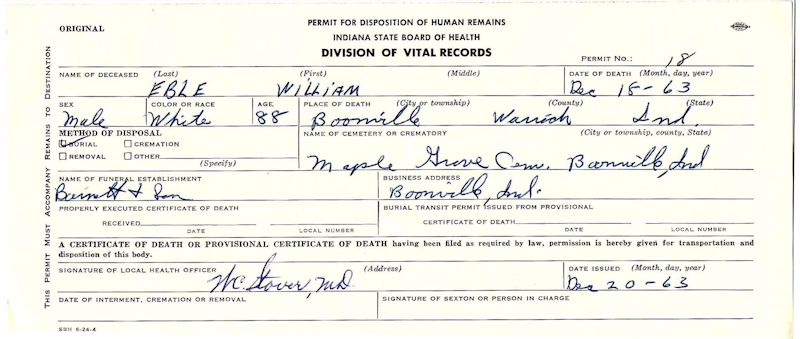 ORIGINAL
PERMIT FOR DISPOSITION OF HUMAN REMAINS
INDIANA STATE BOARD OF HEALTH
DIVISION OF VITAL RECORDS
PERMIT NO.: 18
THIS PERMIT MUST ACCOMPANY REMAINS TO DESTINATION
NAME OF DECEASED (Last) (First) (Middle) DATE OF DEATH (Month, day, year)
EBLE WILLIAM Dec 18-63
SEX COLOR OR RACE AGE PLACE OF DEATH (City or township) (County) (State)
Male White 88 Boonville Warrick Ind.
METHOD OF DISPOSAL NAME OF CEMETERY OR CREMATORY (City or township, county, State)
BURIAL CREMATION
REMOVAL OTHER (Specify)
Maple Grove Cem. Boonville, Ind
NAME OF FUNERAL ESTABLISHMENT BUSINESS ADDRESS
& Son Boonville, Ind.
PROPERLY EXECUTED CERTIFICATE OF DEATH BURIAL TRANSIT PERMIT ISSUED FROM PROVISIONAL
RECEIVED CERTIFICATE OF DEATH
DATE LOCAL NUMBER DATE LOCAL NUMBER
A CERTIFICATE OF DEATH OR PROVISIONAL CERTIFICATE OF DEATH having been filed as required by law, permission is hereby given for transportation and
disposition of this body.
SIGNATURE OF LOCAL HEALTH OFFICER (Address) DATE ISSUED (Month, day, year)
W.C. Stover, M.D. Dec 20-63
DATE OF INTERMENT, CREMATION OR REMOVAL SIGNATURE OF SEXTON OR PERSON IN CHARGE
SBH 6-24-4